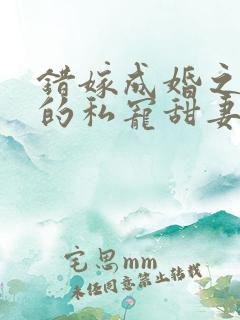 错嫁成婚之
的私宠甜妻
宅思mm
未经同意禁止转载